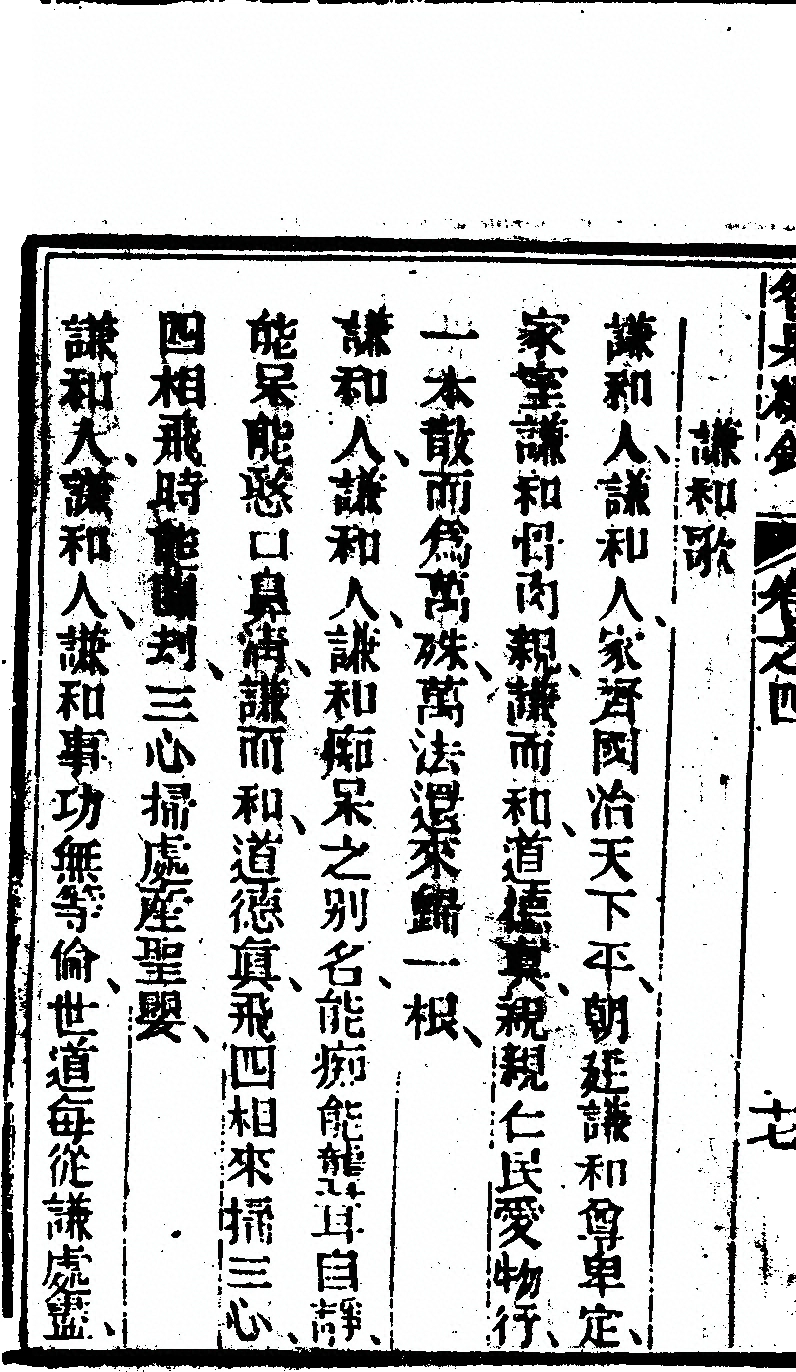 卷之四
十七
謙和歌
謙和人、謙和人、家齊國治天下平、朝廷謙和尊卑定、
家室謙和骨肉親、謙而和、道德真、親親仁民愛物行、
一本散而爲萬殊、萬法還來歸一根、
謙和人、謙和人、謙和痴呆之別名、能痴能聾耳自靜、
能呆能憨口鼻清、謙而和、道德真、飛四相來掃三心、
四相飛時能斷刦、三心掃處產聖嬰、
謙和人、謙和人、謙和事功無等倫、世道每從謙處